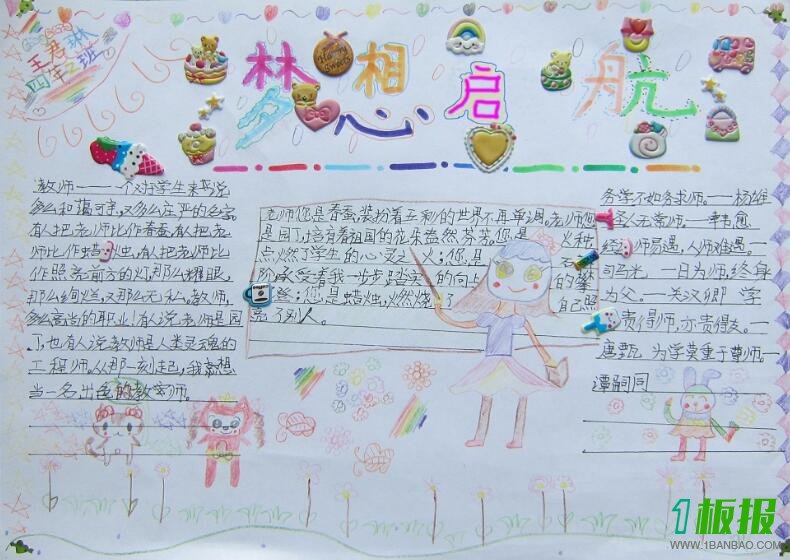 王君琳
四年2班
梦想启航
教师——一个对于学生来说
多么和蔼可亲,又多么庄严的名字,
有人把老师比作春蚕,有人把老
师比作蜡烛,有人把老师比
作照亮前方的灯,那么耀眼,
那么绚烂,又那么无私,教师,
多么高尚的职业!有人说老师是园
丁,也有人说教师是人类灵魂的
工程师,从那一刻起,我就想
当一名出色的教师。
老师您是春蚕,装扮着五彩的世界不再单调,老师您
是园丁,培育着祖国的花朵益然芬芳,您是火种
点燃了学生的心灵之火;您是石
阶,承受着我一步步踏实的向上的攀
登;您是蜡烛,燃烧了自己照
亮了别人。
务学不如务求师。——杨雄
圣人无常师。——韩愈
经师易遇,人师难遇。——
司马光 一日为师,终身
为父。——关汉卿 学
贵得师,亦贵得友。——
唐甄 为学莫重于尊师。——
谭嗣同
1板报
WWW.1BANBAO.COM